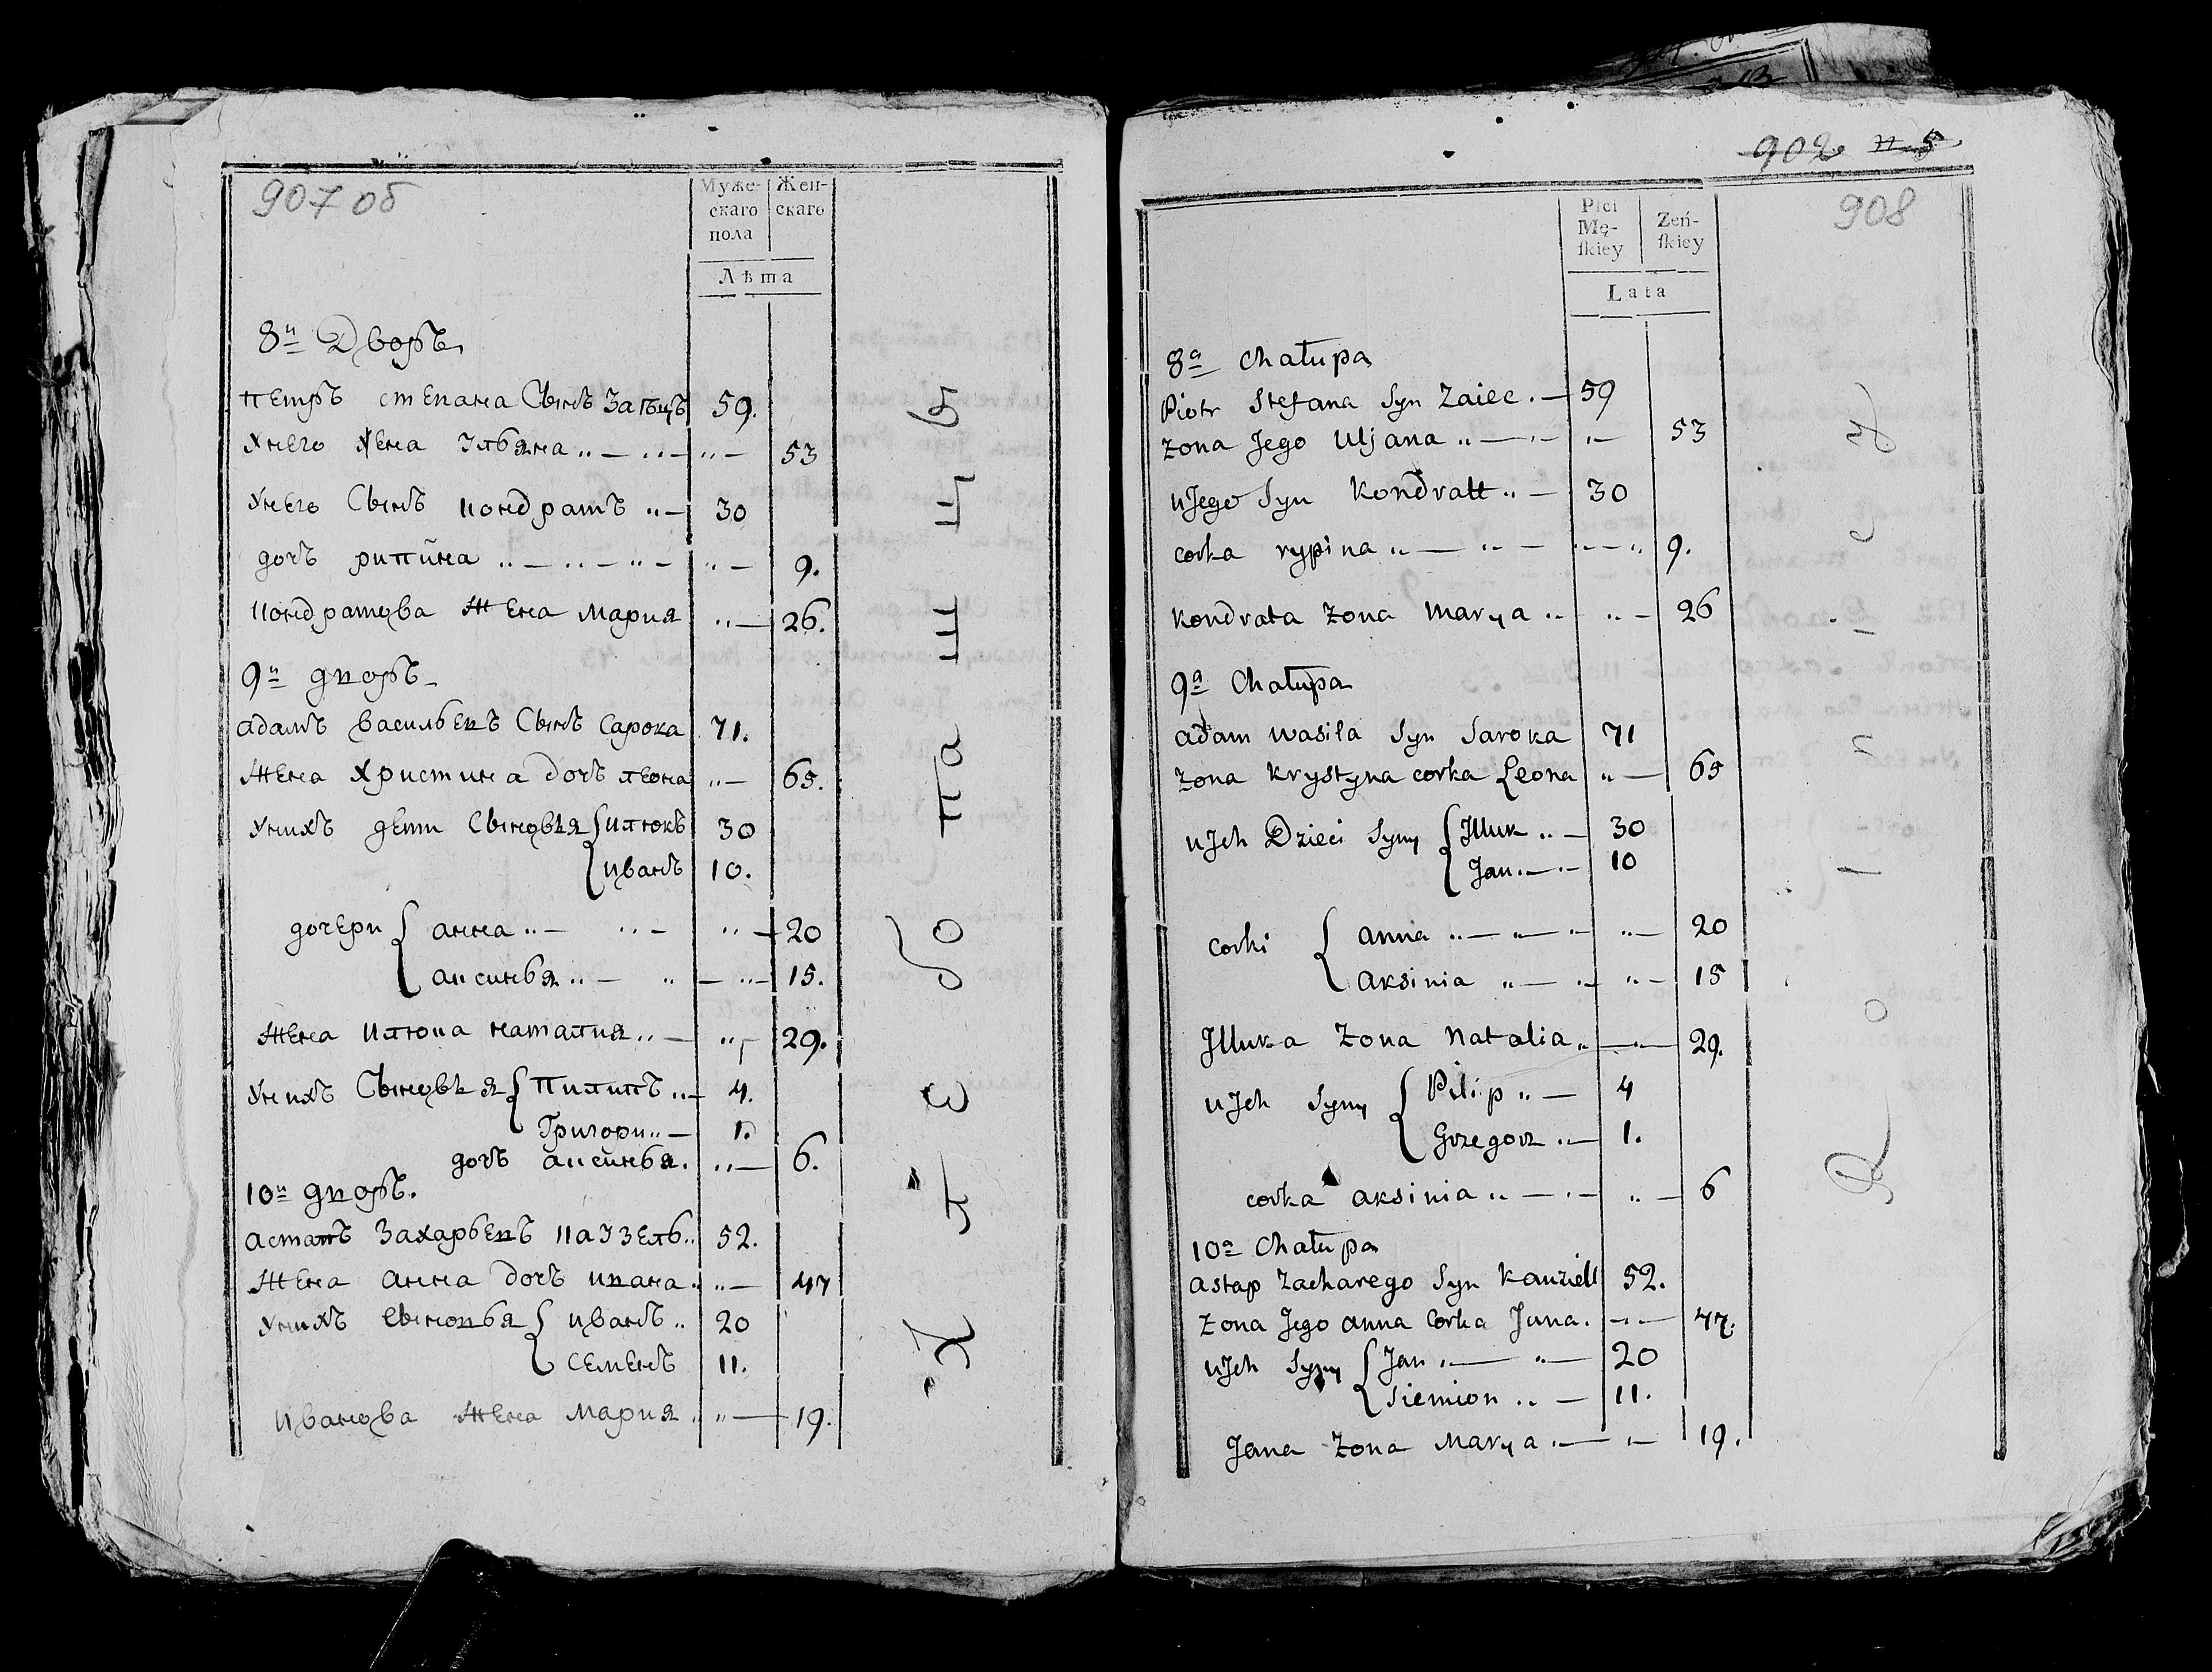 907 об
Муже-
скаго
пола
Жен-
скаго
Лѣта
8й Дворъ
петръ степана Сынъ Заѣцъ 59.
У него жена Ульяна 53
У него Сынъ Кондратъ 30
дочь рипина 9.
Кондратова Жена Мария 26.
9й дворъ
адамъ васильевъ Сынъ Сарока 71.
Жена Христина дочь леона 65.
У нихъ дети Сыновья илюкъ 30
иванъ 10.
дочери анна 20
аксинья 15.
Жена илюка наталия 29.
У нихъ Сыновья пилипъ 4.
Григори 1.
дочь аксинья. 6.
10й дворъ.
астапъ Захарьевъ Каузель 52.
Жена анна дочь ивана 47
У нихъ Сыновья иванъ 20
Семенъ 11.
Иванова Жена Мария 19.
902 5
908
Płci
Mę-
ſkiey
Zeń-
ſkiey
Lata
8a Chałupa
Piotr Stefana Syn Zaiec 59
żona Jego Uljana 53
u Jego Syn Kondratt 30
corka rypina 9.
Kondrata żona Marya 26
9a Chałupa
adam wasila Syn Saroka 71
żona Krystyna corka Leona 65
u Jch Dzieci Syny Jlluk 30
Jan 10
corki anna 20
aksinia 15
Jlluka żona Natalia 29.
u Jch Syny Pilip 4
Grzegorz 1.
corka aksinia 6
10a Chałupa
astap Zacharego Syn Kauziell 52.
żona Jego anna Corka Jwana. 47.
u Jch Syny Jan 20
Siemion 11.
Jana żona Marya 19.